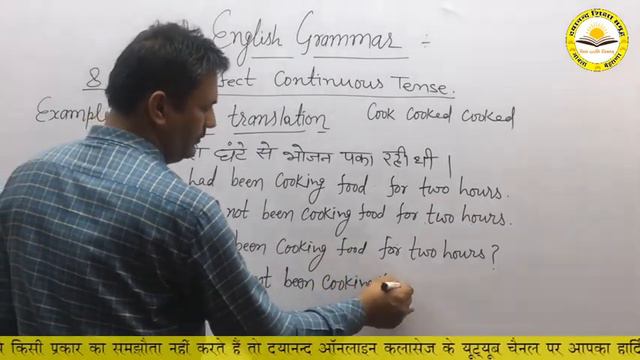 English Grammar :-
8 fect Continuous Tense.
Exampl translation Cook Cooked Cooked
घंटे से भोजन पका रही थी |
had been Cooking food for two hours.
not been Cooking food for two hours.
been Cooking food for two hours?
not been Cooking
किसी प्रकार का समझौता नहीं करते हैं तो दयानन्द ऑनलाइन कलासेज के यूट्यूब चैनल पर आपका हार्दि